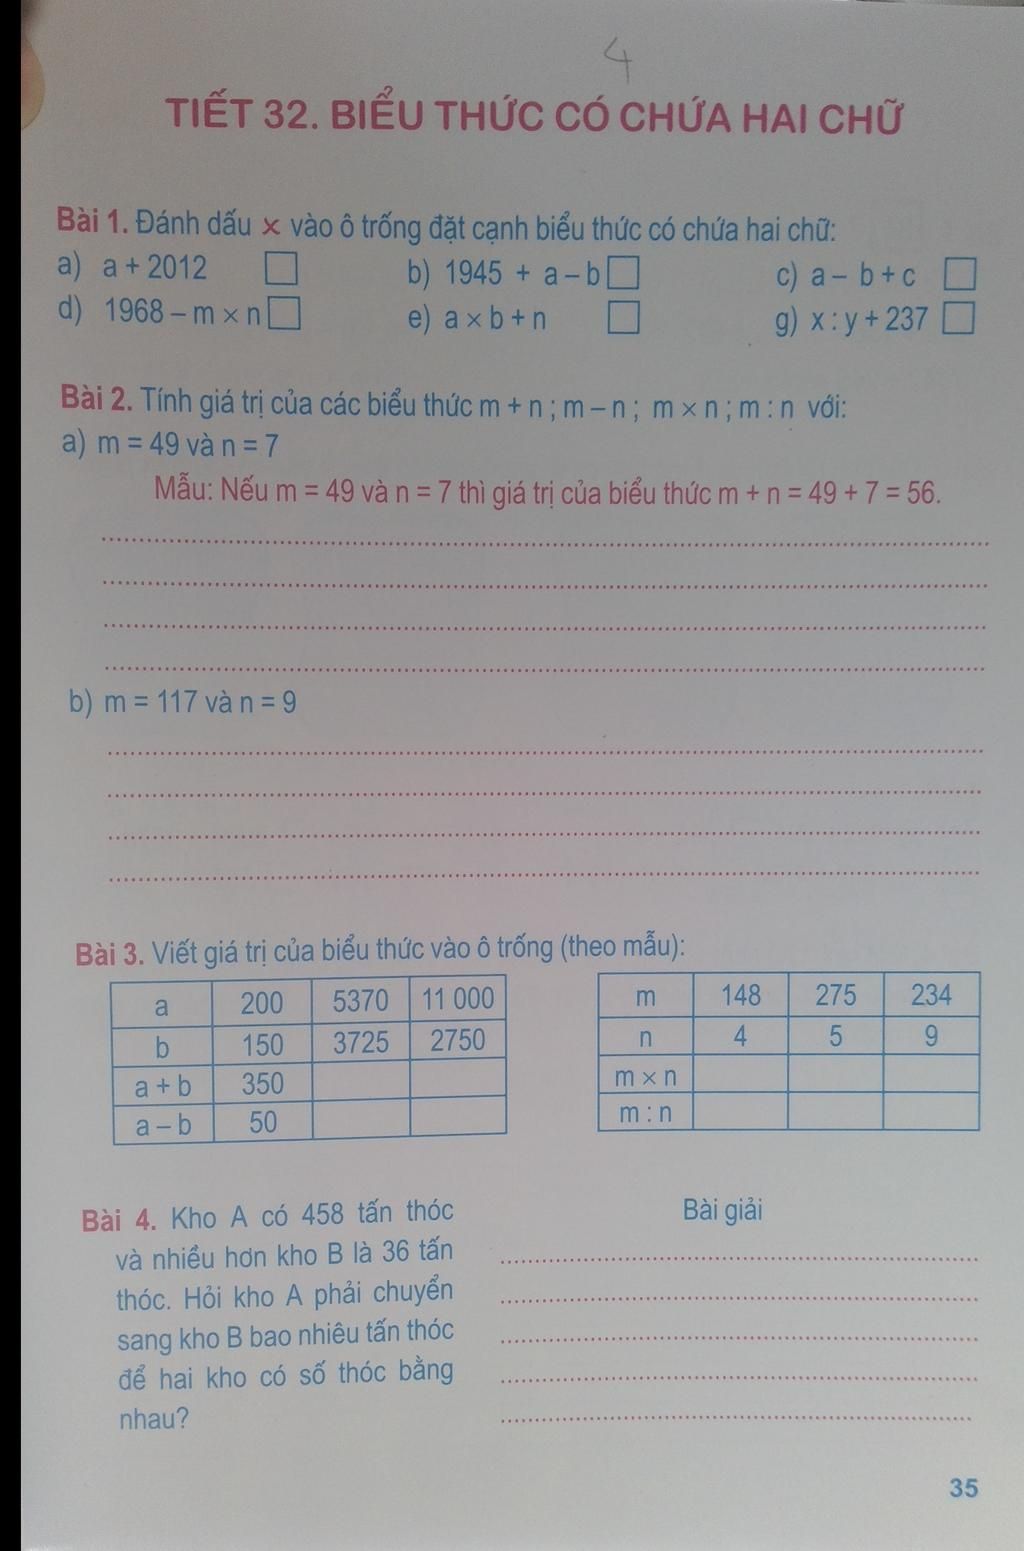 4
TIẾT 32. BIỂU THỨC CÓ CHỨA HAI CHỮ
Bài 1. Đánh dấu × vào ô trống đặt cạnh biểu thức có chứa hai chữ:
a) a + 2012 b) 1945 + a – b c) a – b + c
d) 1968 – m × n e) a × b + n g) x : y + 237
Bài 2. Tính giá trị của các biểu thức m + n ; m – n ; m × n ; m : n với:
a) m = 49 và n = 7
Mẫu: Nếu m = 49 và n = 7 thì giá trị của biểu thức m + n = 49 + 7 = 56.
b) m = 117 và n = 9
Bài 3. Viết giá trị của biểu thức vào ô trống (theo mẫu):
a 200 5370 11 000
b 150 3725 2750
a + b 350
a – b 50
m 148 275 234
n 4 5 9
m × n
m : n
Bài 4. Kho A có 458 tấn thóc
và nhiều hơn kho B là 36 tấn
thóc. Hỏi kho A phải chuyển
sang kho B bao nhiêu tấn thóc
để hai kho có số thóc bằng
nhau?
Bài giải
35